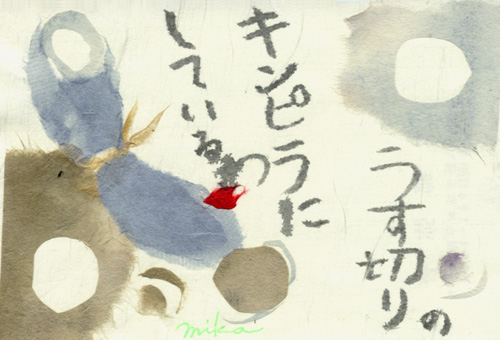 うす切りの
キンピラに
しているわ
mika